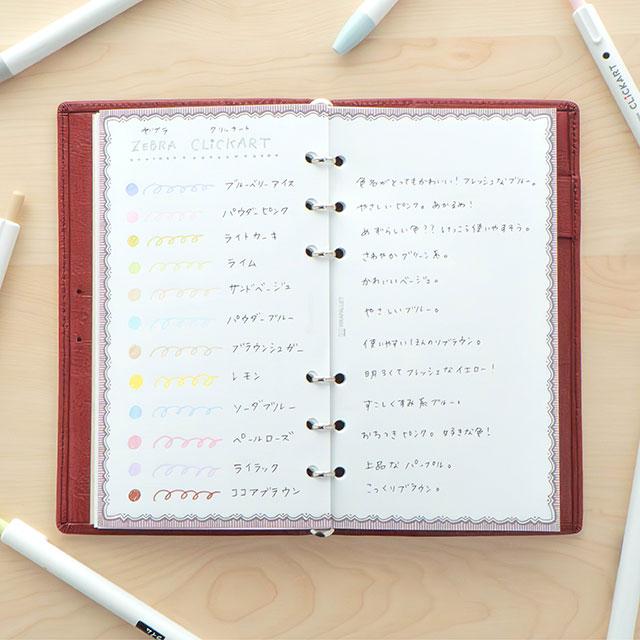 ゼブラ クリッカート
ZEBRA CLiCKART
ブルーベリーアイス 色名がとってもかわいい！フレッシュなブルー。
パウダーピンク やさしいピンク。あかるめ！
ライトカーキ めずらしい色？？けっこう使いやすそう。
ライム さわやかグリーン系。
サンドベージュ かわいいベージュ。
パウダーブルー やさしいブルー。
ブラウンシュガー 使いやすいほんのりブラウン。
レモン 明るくてフレッシュなイエロー！
ソーダブルー すこしくすみ系ブルー。
ペールローズ おちつきピンク。好きな色！
ライラック 上品なパープル。
ココアブラウン こっくりブラウン。
CLiCKART